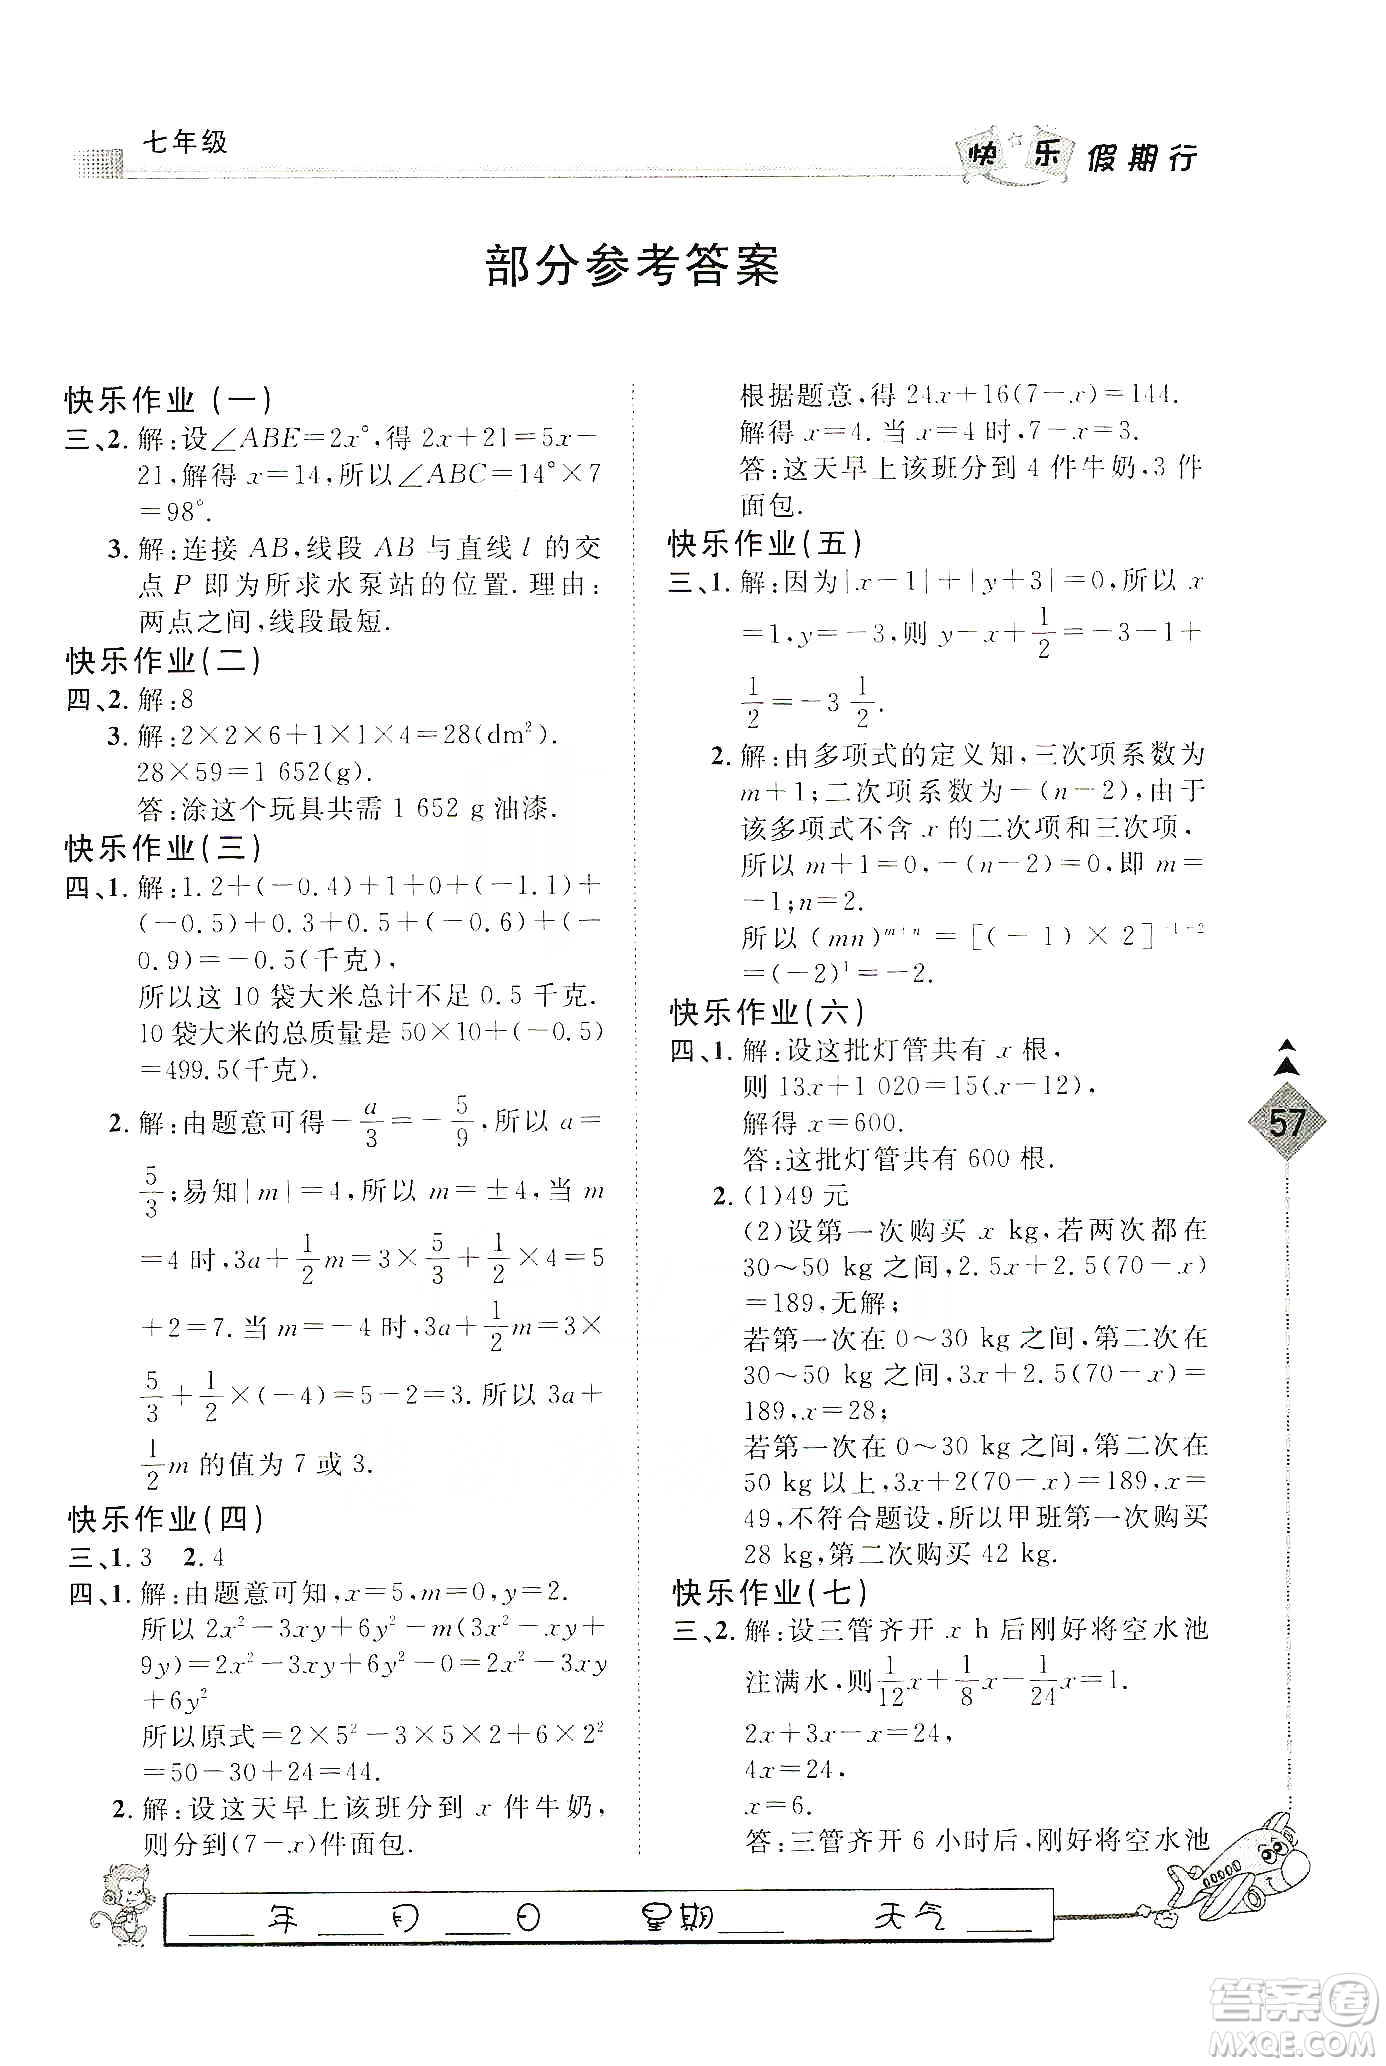 七年级
快乐假期行
部分参考答案
快乐作业(一)
三、2. 解:设∠ABE=2x°,得 2x+21=5x-
21,解得 x=14,所以∠ABC=14°×7
=98°.
3. 解:连接 AB,线段 AB 与直线 l 的交
点 P 即为所求水泵站的位置. 理由:
两点之间,线段最短.
快乐作业(二)
四、2. 解:8
3. 解:2×2×6+1×1×4=28(dm²).
28×59=1 652(g).
答:涂这个玩具共需 1 652 g 油漆.
快乐作业(三)
四、1. 解:1.2+(-0.4)+1+0+(-1.1)+
(-0.5)+0.3+0.5+(-0.6)+(-
0.9)=-0.5(千克),
所以这 10 袋大米总计不足 0.5 千克.
10 袋大米的总质量是 50×10+(-0.5)
=499.5(千克).
2. 解:由题意可得-a/3=-5/9,所以 a=
5/3;易知|m|=4,所以 m=±4,当 m
=4 时,3a+1/2m=3×5/3+1/2×4=5
+2=7. 当 m=-4 时,3a+1/2m=3×
5/3+1/2×(-4)=5-2=3. 所以 3a+
1/2m 的值为 7 或 3.
快乐作业(四)
三、1. 3  2. 4
四、1. 解:由题意可知,x=5,m=0,y=2.
所以 2x²-3xy+6y²-m(3x²-xy+
9y)=2x²-3xy+6y²-0=2x²-3xy
+6y²
所以原式=2×5²-3×5×2+6×2²
=50-30+24=44.
2. 解:设这天早上该班分到 x 件牛奶,
则分到(7-x)件面包.
根据题意,得 24x+16(7-x)=144.
解得 x=4. 当 x=4 时,7-x=3.
答:这天早上该班分到 4 件牛奶,3 件
面包.
快乐作业(五)
三、1. 解:因为|x-1|+|y+3|=0,所以 x
=1,y=-3,则 y-x+1/2=-3-1+
1/2=-3 1/2.
2. 解:由多项式的定义知,三次项系数为
m+1;二次项系数为-(n-2),由于
该多项式不含 x 的二次项和三次项,
所以 m+1=0,-(n-2)=0,即 m=
-1;n=2.
所以 (mn)^(m+n)=[(-1)×2]^(-1+2)
=(-2)¹=-2.
快乐作业(六)
四、1. 解:设这批灯管共有 x 根,
则 13x+1 020=15(x-12),
解得 x=600.
答:这批灯管共有 600 根.
2. (1)49 元
(2)设第一次购买 x kg,若两次都在
30～50 kg 之间,2.5x+2.5(70-x)
=189,无解;
若第一次在 0～30 kg 之间,第二次在
30～50 kg 之间,3x+2.5(70-x)=
189,x=28;
若第一次在 0～30 kg 之间,第二次在
50 kg 以上,3x+2(70-x)=189,x=
49,不符合题设,所以甲班第一次购买
28 kg,第二次购买 42 kg.
快乐作业(七)
三、2. 解:设三管齐开 x h 后刚好将空水池
注满水,则1/12x+1/8x-1/24x=1.
2x+3x-x=24,
4x=24,
x=6.
答:三管齐开 6 小时后,刚好将空水池
57
年 月 日 星期 天气
答案卷
MXQE.COM